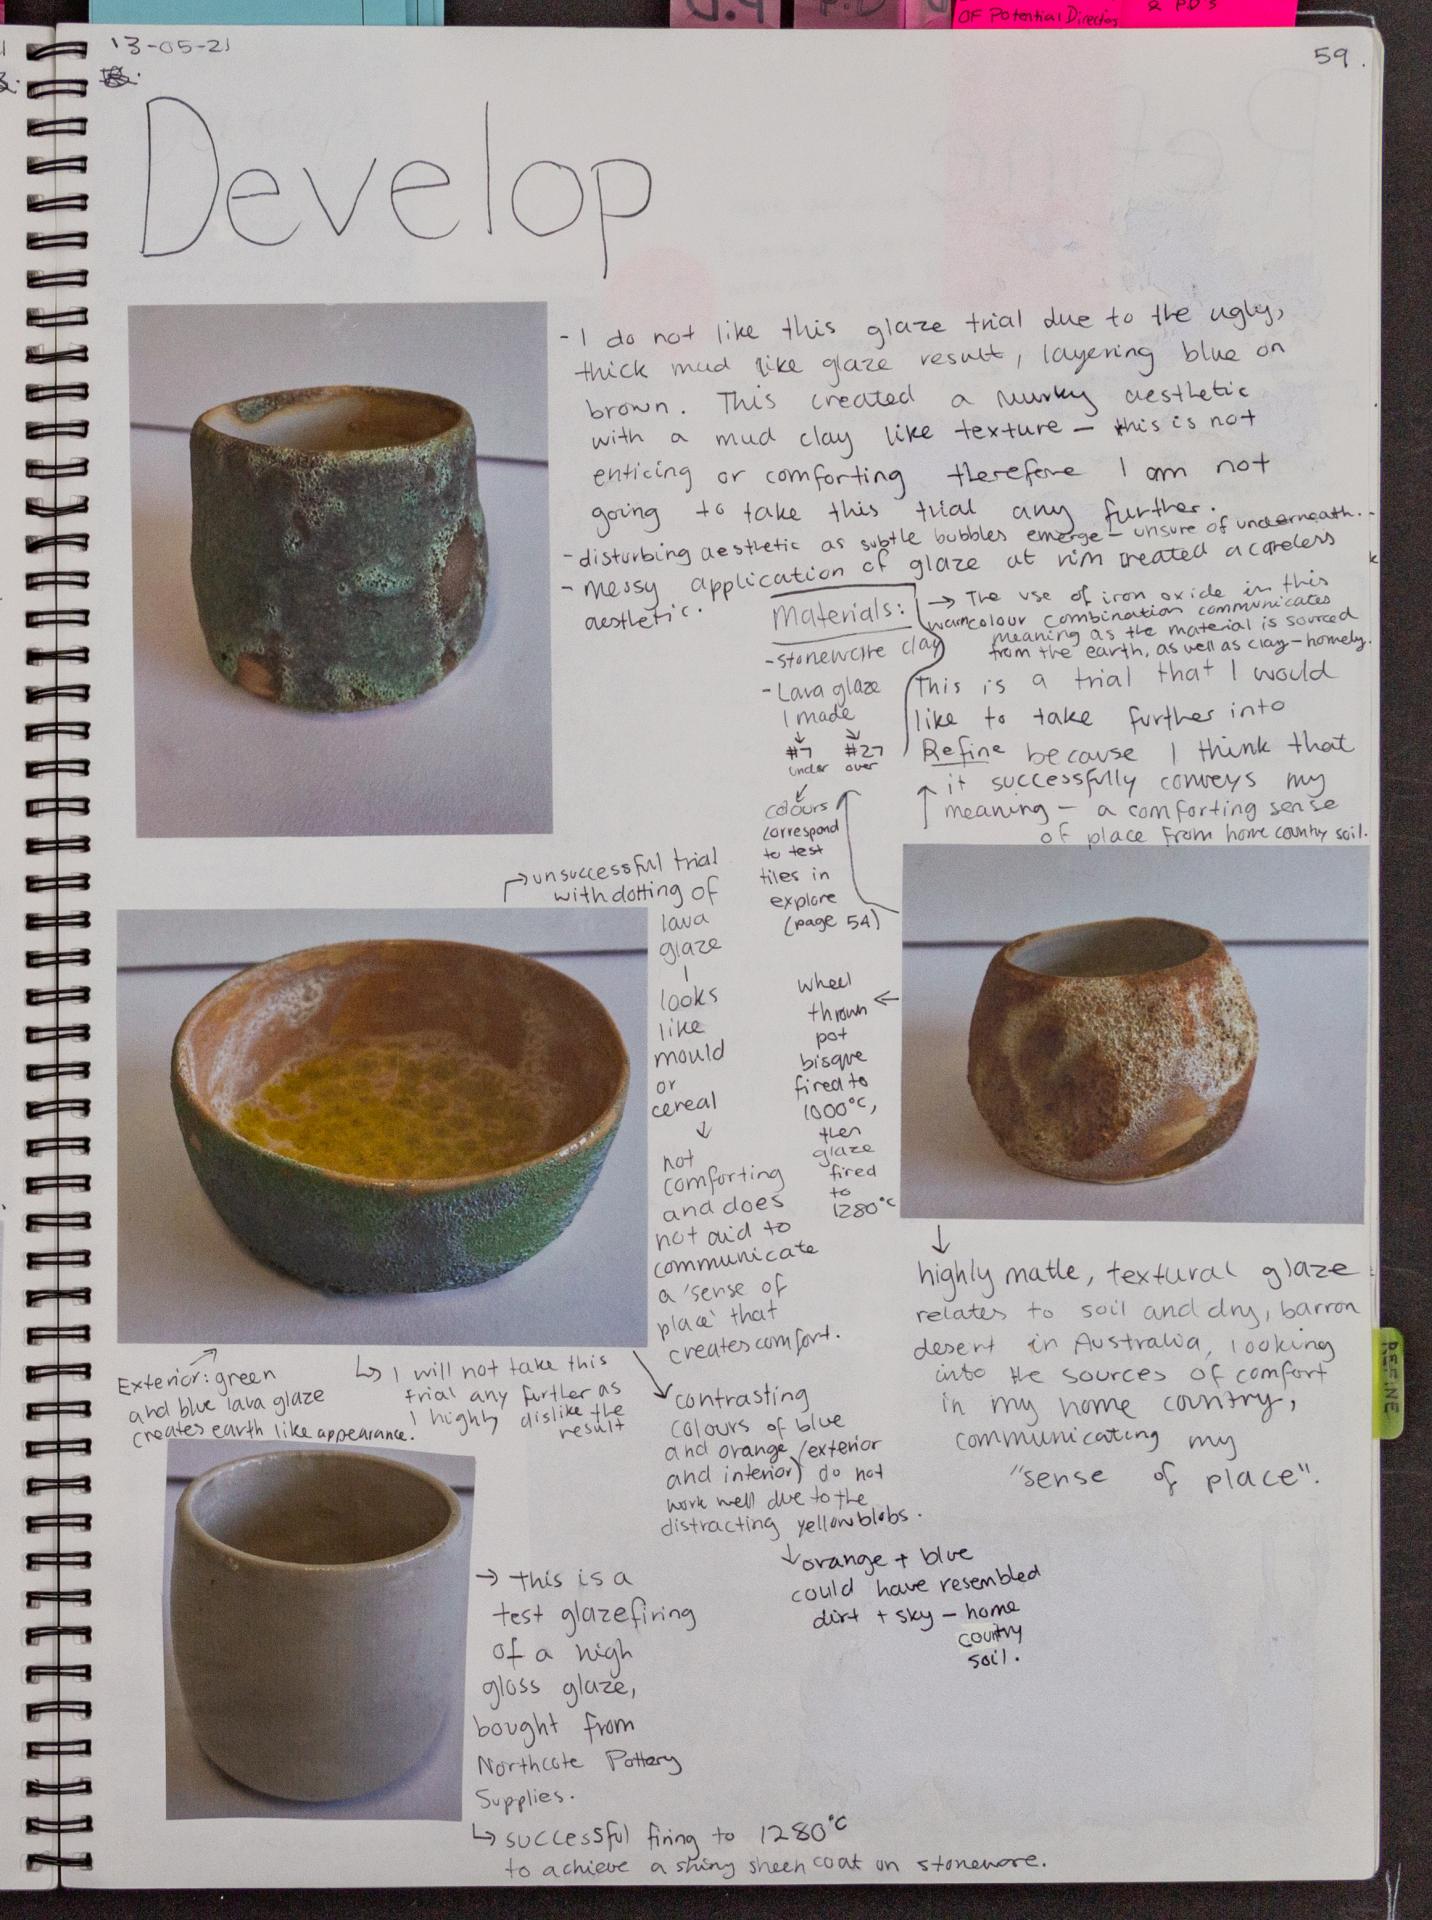 OF Potential Director
& PD's
13-05-21
59.
Develop
- I do not like this glaze trial due to the ugly,
thick mud like glaze result, layering blue on
brown. This created a murky aesthetic
with a mud clay like texture - this is not
enticing or comforting therefore I am not
going to take this trial any further.
- disturbing aesthetic as subtle bubbles emerge - unsure of underneath.
- messy application of glaze at rim created a careless
aesthetic.
Materials:
- stoneware clay
- Lava glaze
I made
#7 #27
under over
colours
correspond
to test
tiles in
explore
(page 54)
→ The use of iron oxide in this
warm colour combination communicates
meaning as the material is sourced
from the earth, as well as clay - homely.
This is a trial that I would
like to take further into
Refine because I think that
it successfully conveys my
meaning - a comforting sense
of place from home country soil.
→ unsuccessful trial
with dotting of
lava
glaze
looks
like
mould
or
cereal
↓
not
comforting
and does
not aid to
communicate
a 'sense of
place' that
creates comfort.
wheel
thrown
pot
bisque
fired to
1000°C,
then
glaze
fired
to
1280°C
highly matte, textural glaze
relates to soil and dry, barron
desert in Australia, looking
into the sources of comfort
in my home country,
communicating my
"sense of place".
REFINE
Exterior: green
and blue lava glaze
creates earth like appearance.
↳ I will not take this
trial any further as
I highly dislike the
result
contrasting
colours of blue
and orange (exterior
and interior) do not
work well due to the
distracting yellow blobs.
↓ orange + blue
could have resembled
dirt + sky - home
country
soil.
→ this is a
test glaze firing
of a high
gloss glaze,
bought from
Northcote Pottery
Supplies.
↳ successful firing to 1280°C
to achieve a shiny sheen coat on stoneware.